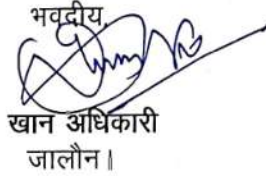 भवदीय,
खान अधिकारी
जालौन।